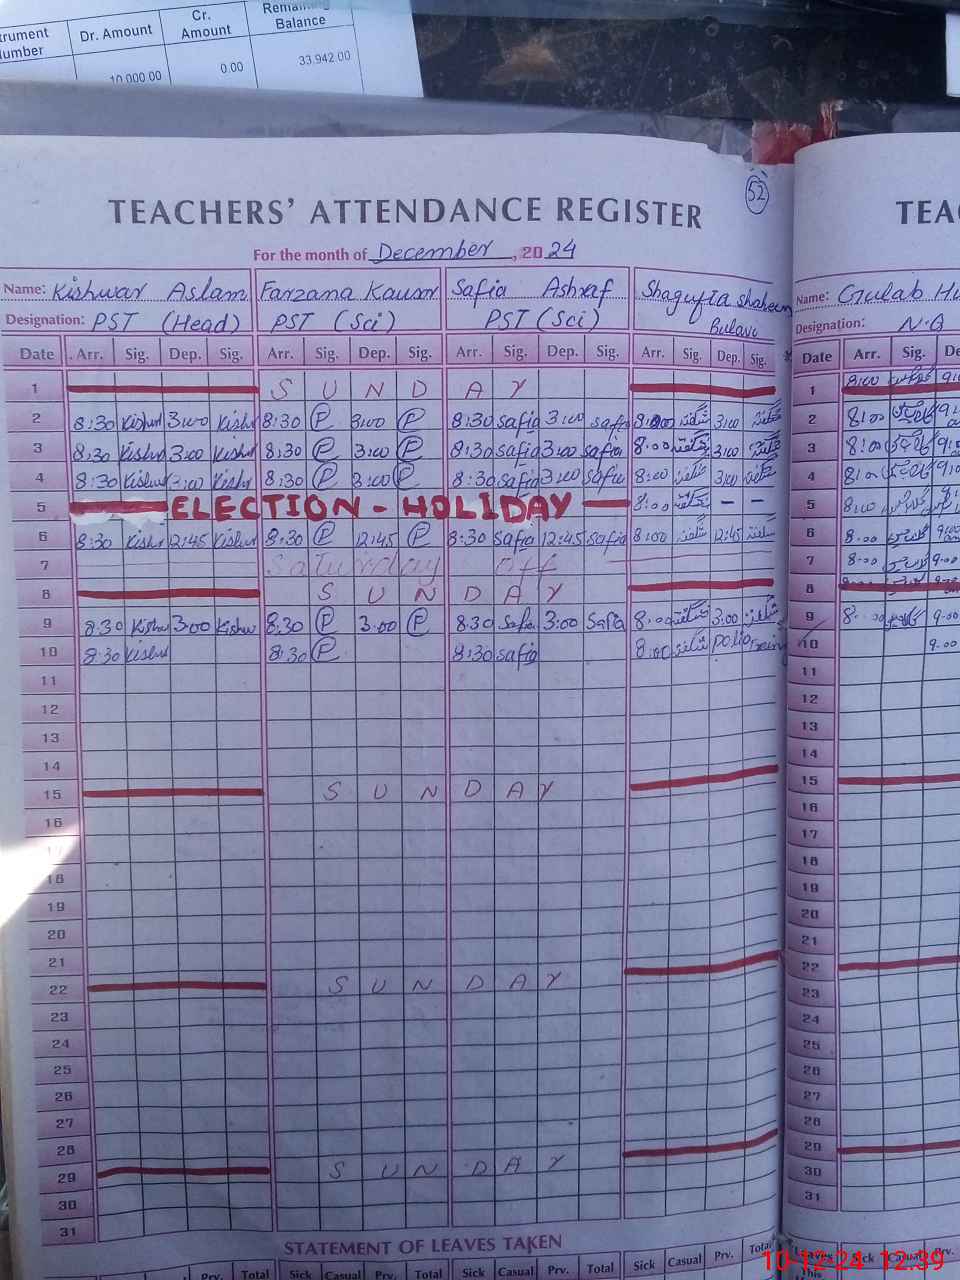 trument Number Dr. Amount Cr. Amount Remaining Balance
10,000.00 0.00 33,942.00
52
TEACHERS' ATTENDANCE REGISTER TEAC
For the month of December, 2024
Name: Kishwar Aslam Farzana Kausar Safia Ashraf Shagufta Shaheen Name: Gulab
Designation: PST (Head) PST (Sci) PST (Sci) Bulavi Designation: N.Q
Date Arr. Sig. Dep. Sig. Arr. Sig. Dep. Sig. Arr. Sig. Dep. Sig. Arr. Sig. Dep. Sig. Date Arr. Sig. De
1 SUNDAY 1 8:00
2 8:30 Kishw 3:00 Kishw 8:30 P 3:00 P 8:30 Safia 3:00 Safia 8:00 شگفتہ 3:00 شگفتہ 2 8:00
3 8:30 Kishw 3:00 Kishw 8:30 P 3:00 P 8:30 Safia 3:00 Safia 8:00 شگفتہ 3:00 شگفتہ 3 8:00
4 8:30 Kishw 3:00 Kishw 8:30 P 3:00 P 8:30 Safia 3:00 Safia 8:00 شگفتہ 3:00 شگفتہ 4 8:00
5 ELECTION - HOLIDAY 8:00 شگفتہ - - 5 8:00
6 8:30 Kishw 12:45 Kishw 8:30 P 12:45 P 8:30 Safia 12:45 Safia 8:00 شگفتہ 12:45 شگفتہ 6 8:00 9:00
7 Saturday off 7 8:00 9:00
8 SUNDAY 8
9 8:30 Kishw 3:00 Kishw 8:30 P 3:00 P 8:30 Safia 3:00 Safia 8:00 شگفتہ 3:00 شگفتہ 9 8:00 9:00
10 8:30 Kishw 8:30 P 8:30 Safia 8:00 شگفتہ polio 10 9:00
11 11
12 12
13 13
14 14
15 SUNDAY 15
16 16
17 17
18 18
19 19
20 20
21 21
22 SUNDAY 22
23 23
24 24
25 25
26 26
27 27
28 28
29 SUNDAY 29
30 30
31 31
STATEMENT OF LEAVES TAKEN
Prv. Total Sick Casual Prv. Total Sick Casual Prv. Total Sick Casual Prv. Total Leaves Sick Casual Prv.
This
10-12-24 12:39